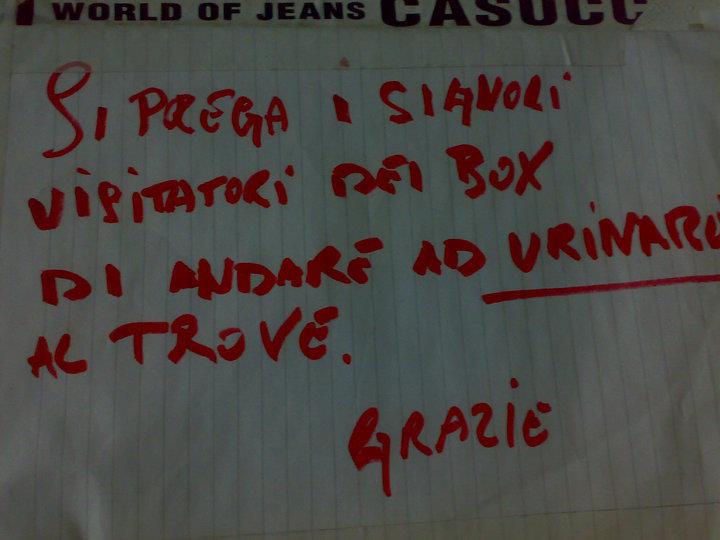 WORLD OF JEANS CASUCC
SI PREGA I SIGNORI
VISITATORI DEI BOX
DI ANDARE AD URINARE
AL TROVE.
GRAZIE